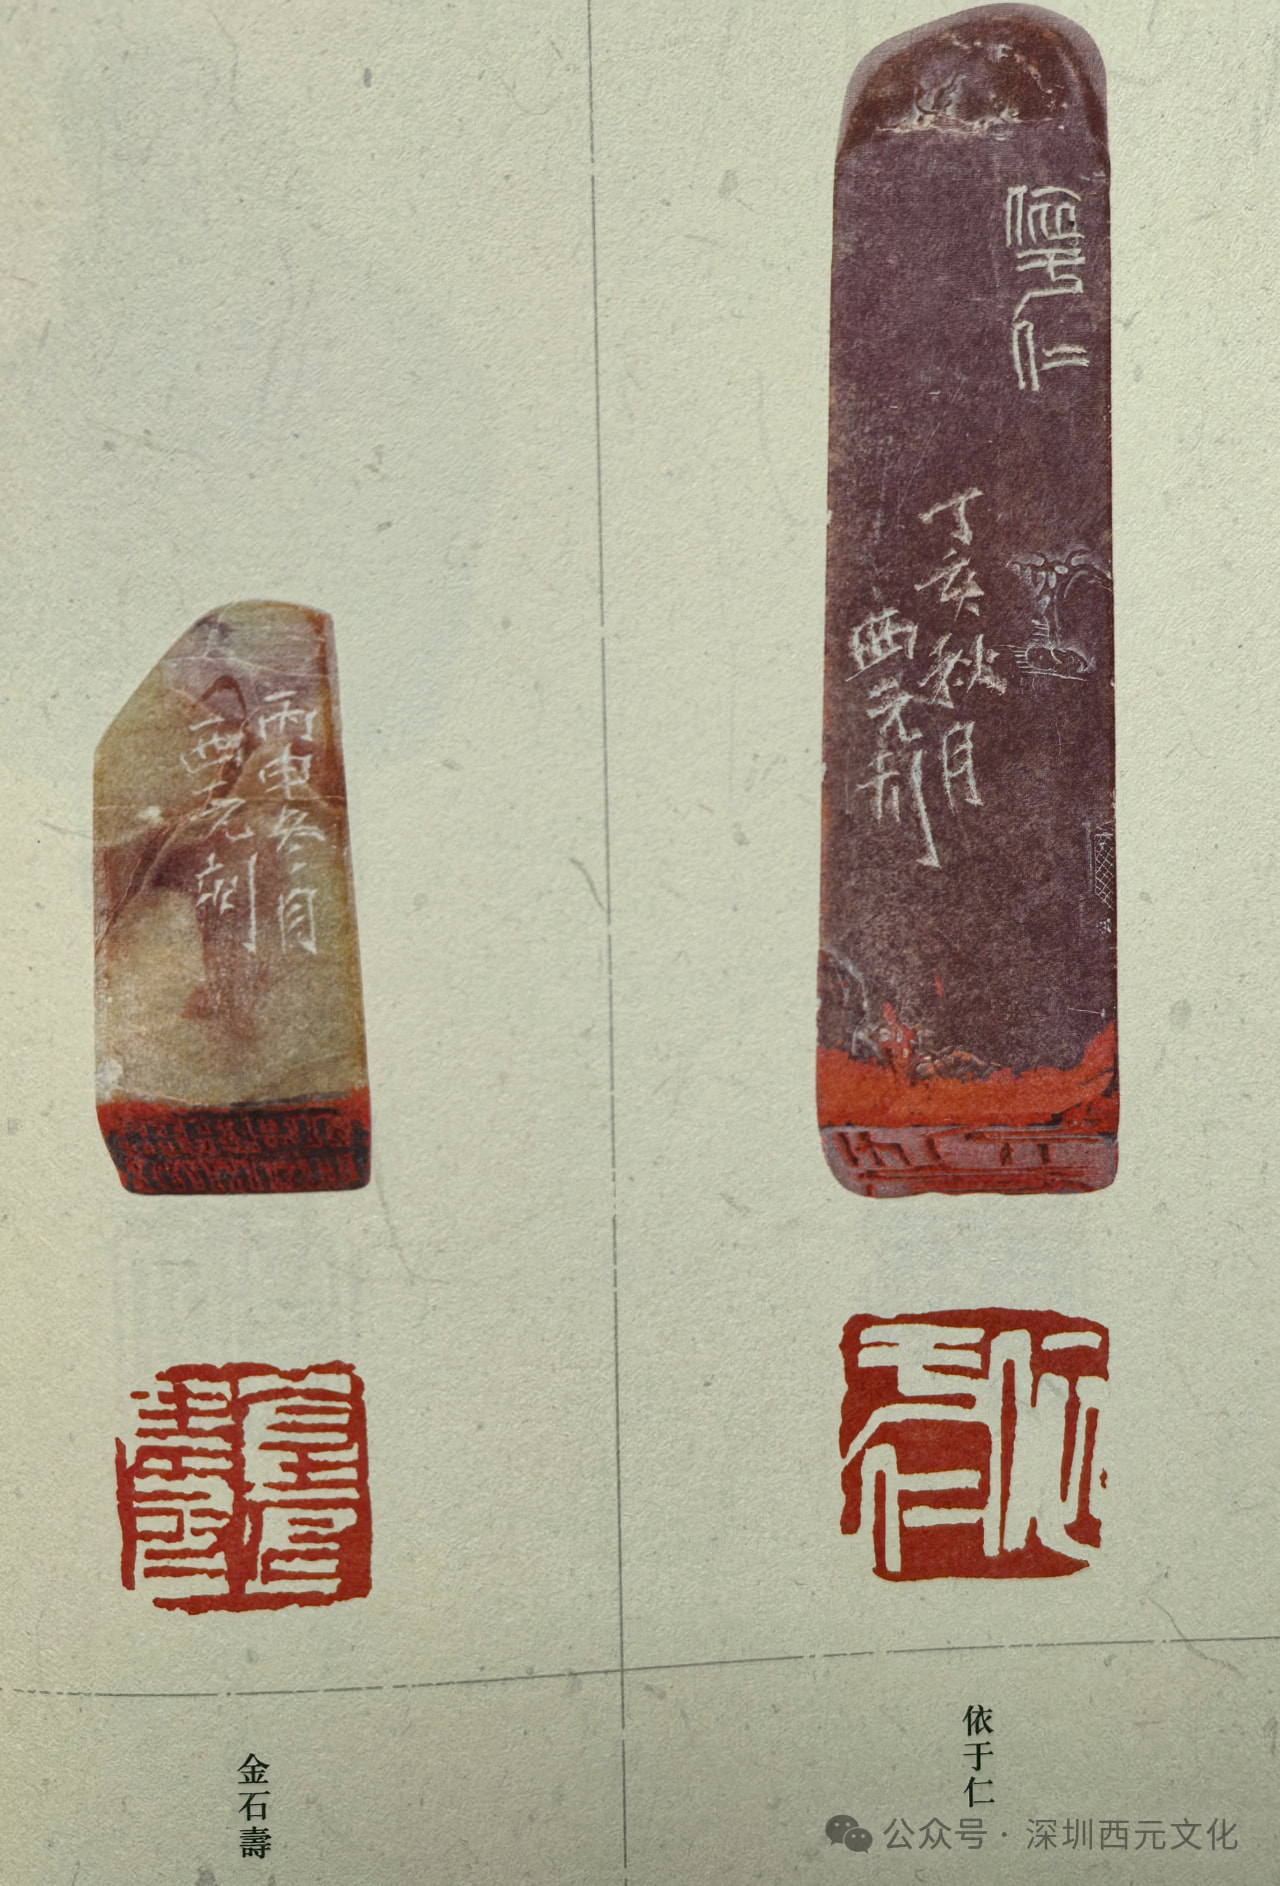 依于仁
丁亥秋月
西元刻
依于仁
依于仁
丙申冬月
西元刻
金石壽
金石壽
公众号·深圳西元文化